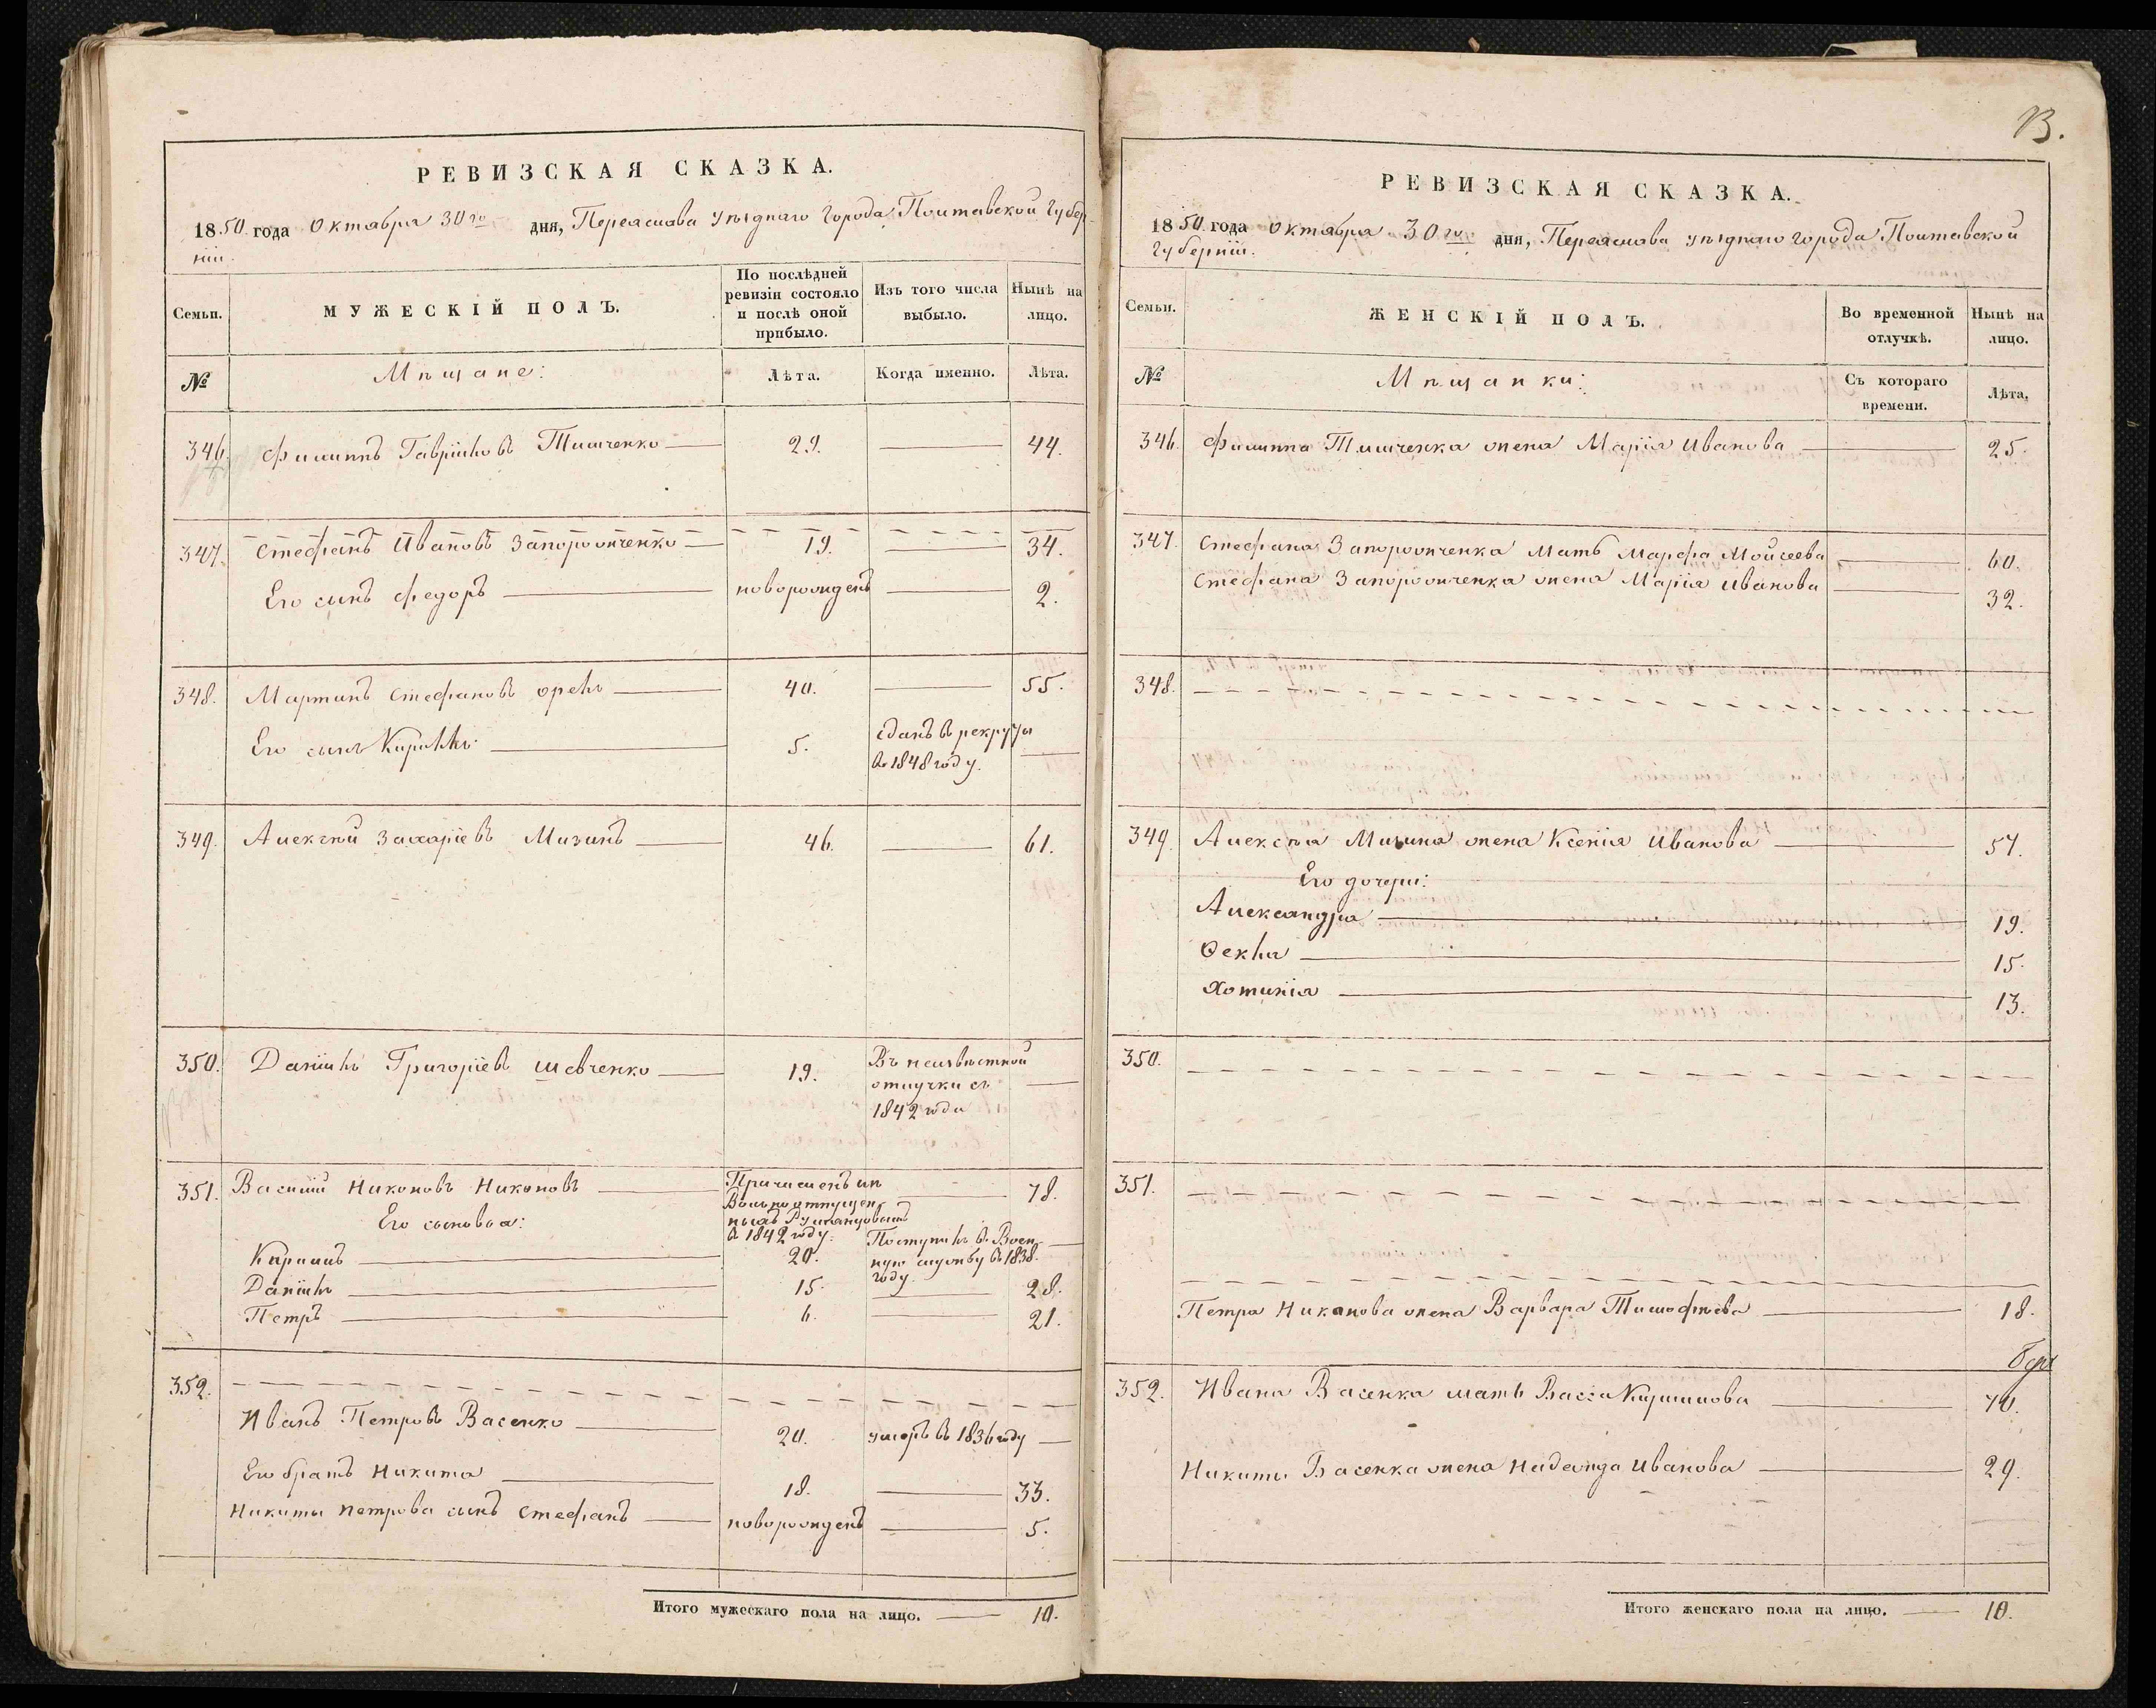 РЕВИЗСКАЯ СКАЗКА.
1850 года Октября 30го дня, Переяслава уѣзднаго города Полтавской Губер-
ніи.
Семьи.
МУЖЕСКІЙ ПОЛЪ.
По послѣдней ревизіи состояло и послѣ оной прибыло.
Изъ того числа выбыло.
Нынѣ на лицо.
№
Мѣщане:
Лѣта.
Когда именно.
Лѣта.
346. Филиппъ Гавріиловъ Тимченко 29. 44.
347. Стефанъ Ивановъ Запорожченко 19. 34.
Его сынъ Федоръ новорожденъ 2.
348. Мартинъ Стефановъ Орелъ 40. 55.
Его сынъ Кириллъ 5. сданъ въ рекруты
въ 1848 году.
349. Алексѣй Захаріевъ Мизинъ 46. 61.
350. Даніилъ Григоріевъ Шевченко 19. Въ неизвѣстной
отлучки съ
1842 года
351. Василій Никоновъ Никоновъ Причисленъ изъ 78.
Вольноотпущен-
Его сыновья:
въ 1842 году.
Кирилъ 20. Поступилъ въ Воен-
ную службу въ 1838.
году.
Даніилъ 15. 28.
Петръ 6. 21.
352.
Иванъ Петровъ Васенко 20. умеръ въ 1836 году
Его братъ Никита 18. 33.
Никиты Петрова сынъ Стефанъ новорожденъ 5.
Итого мужескаго пола на лицо. 10.
РЕВИЗСКАЯ СКАЗКА.
1850 года Октября 30го дня, Переяслава уѣзднаго города Полтавской
Губерніи.
Семьи.
ЖЕНСКІЙ ПОЛЪ.
Во временной отлучкѣ.
Нынѣ на лицо.
№
Мѣщанки:
Съ котораго времени.
Лѣта.
346. Филиппа Тимченка жена Марія Иванова 25.
347. Стефана Запорожченка мать Марфа Моисеева 60.
Стефана Запорожченка жена Марія Иванова 32.
348.
349. Алексѣя Мизина жена Ксенія Иванова 57.
Его дочери:
Александра 19.
Ѳекла 15.
Хотинія 13.
350.
351.
Петра Никонова жена Варвара Тимофѣева 18.
352. Ивана Васенка мать Васса Кирилова 70.
Никиты Васенка жена Надежда Иванова 29.
Итого женскаго пола на лицо. 10.